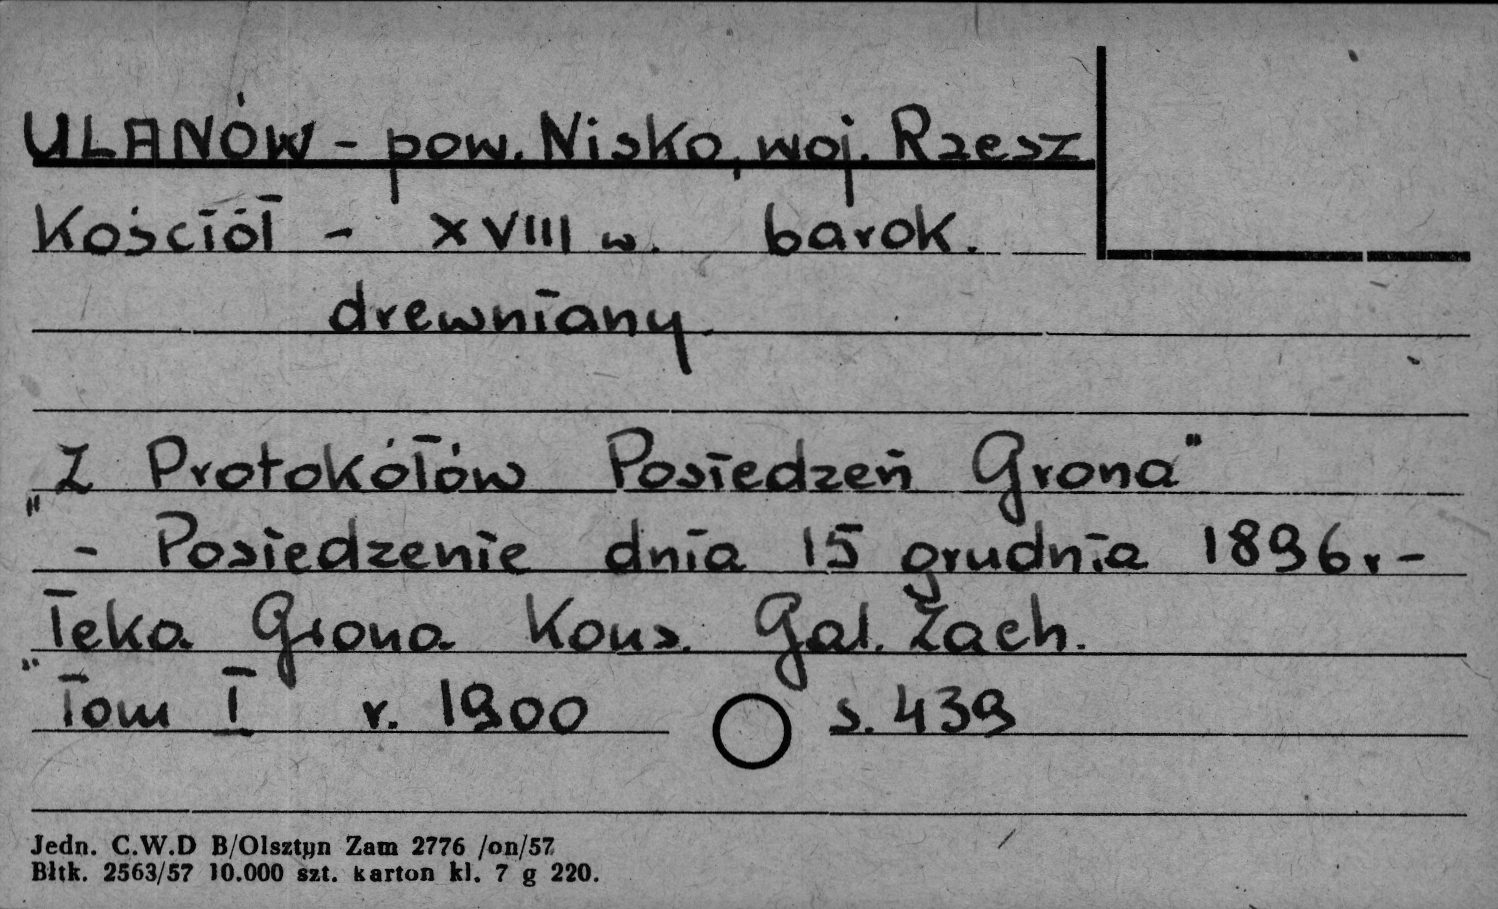 ULANÓW - pow. Nisko, woj. Rzesz
Kościół - XVIII w. barok.
drewniany.
"Z Protokółów Posiedzeń Grona"
- Posiedzenie dnia 15 grudnia 1896 r -
Teka Grona Kons. Gal. Zach.
"Tom I r. 1900 s. 439
Jedn. C.W.D B/Olsztyn Zam 2776 /on/57
Błtk. 2563/57 10.000 szt. karton kl. 7 g 220.